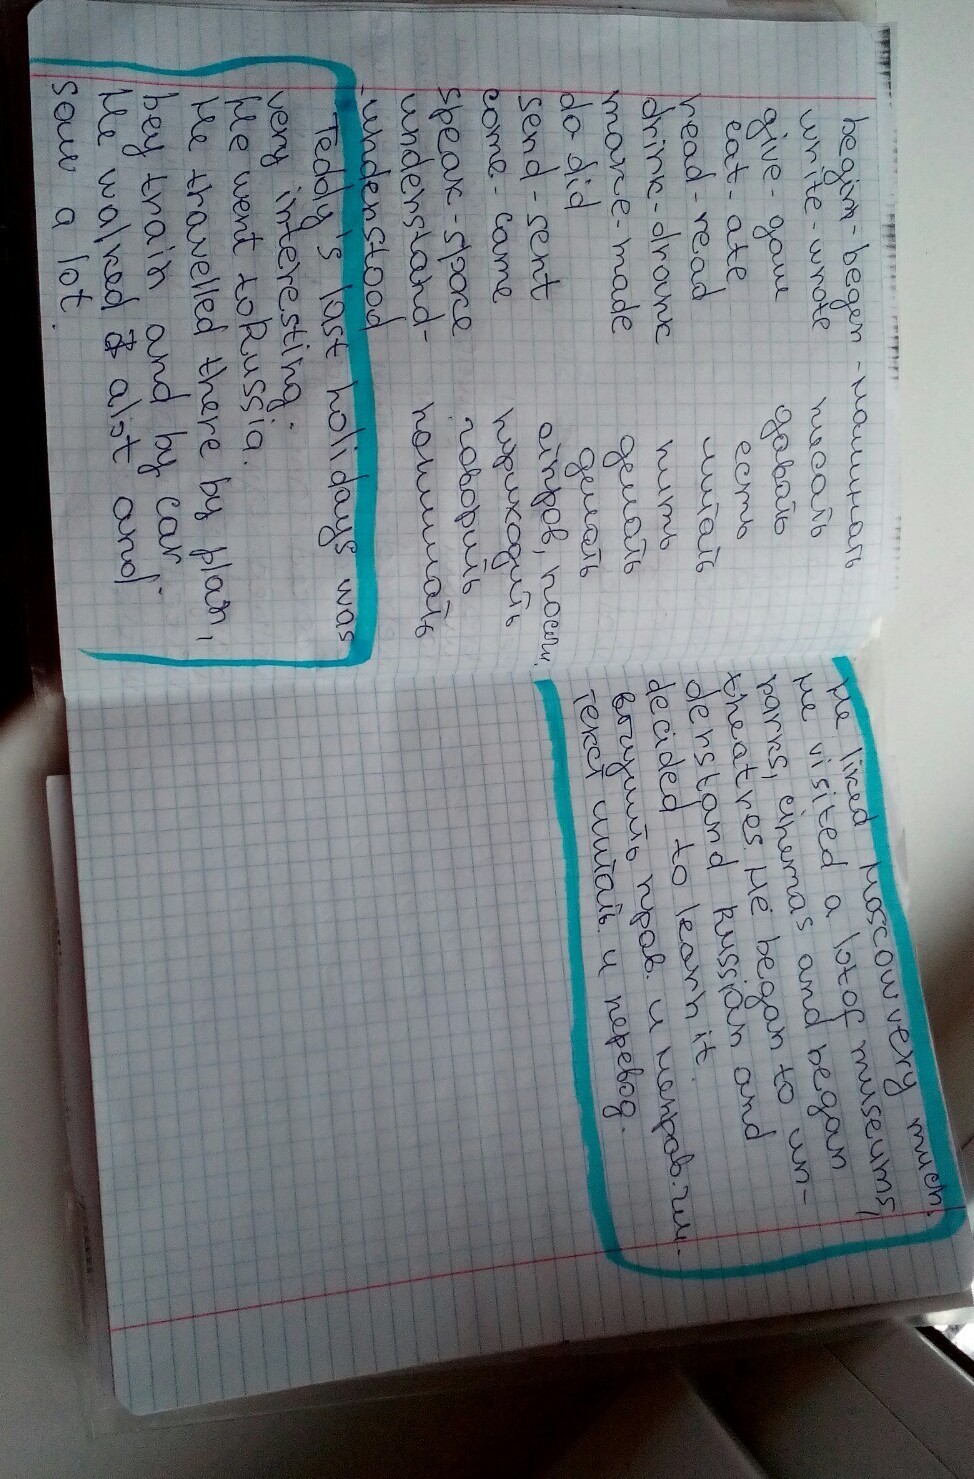 begin-began - начинать
write-wrote писать
give-gave давать
eat-ate есть
read-read читать
drink-drank пить
make-made делать
do did делать
send-sent отпров, посыл.
come-came приходить
speak-spoke говорить
understand- понимать
-understood
Teddy's last holidays was
very interesting.
He went to Russia.
He travelled there by plan,
bey train and by car.
He walked a alot and
saw a lot.
He liked Moscow very much.
He visited a lot of museums,
parks, cinemas and began
theatres. He began to un-
derstand Russian and
decided to learn it.
выучить прав. и неправ. гл.
текст читать и перевод.